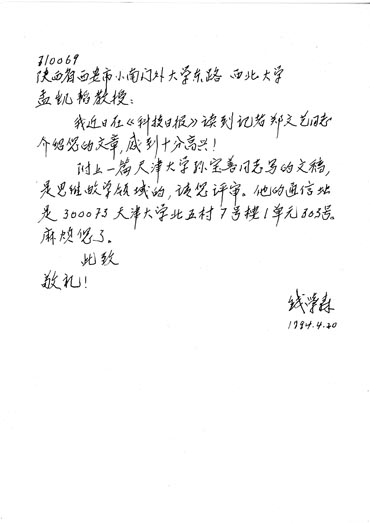 710069
陕西省西安市小南门外大学东路 西北大学
孟凯韬教授:
我近日在《科技日报》读到记者郑文艺同志
介绍您的文章,感到十分高兴!
附上一篇天津大学孙宝善同志写的文稿,
是思维数学领域的,请您评审。他的通信址
是300073天津大学北五村7号楼1单元303号。
麻烦您了。
此致
敬礼!
钱学森
1994.4.20